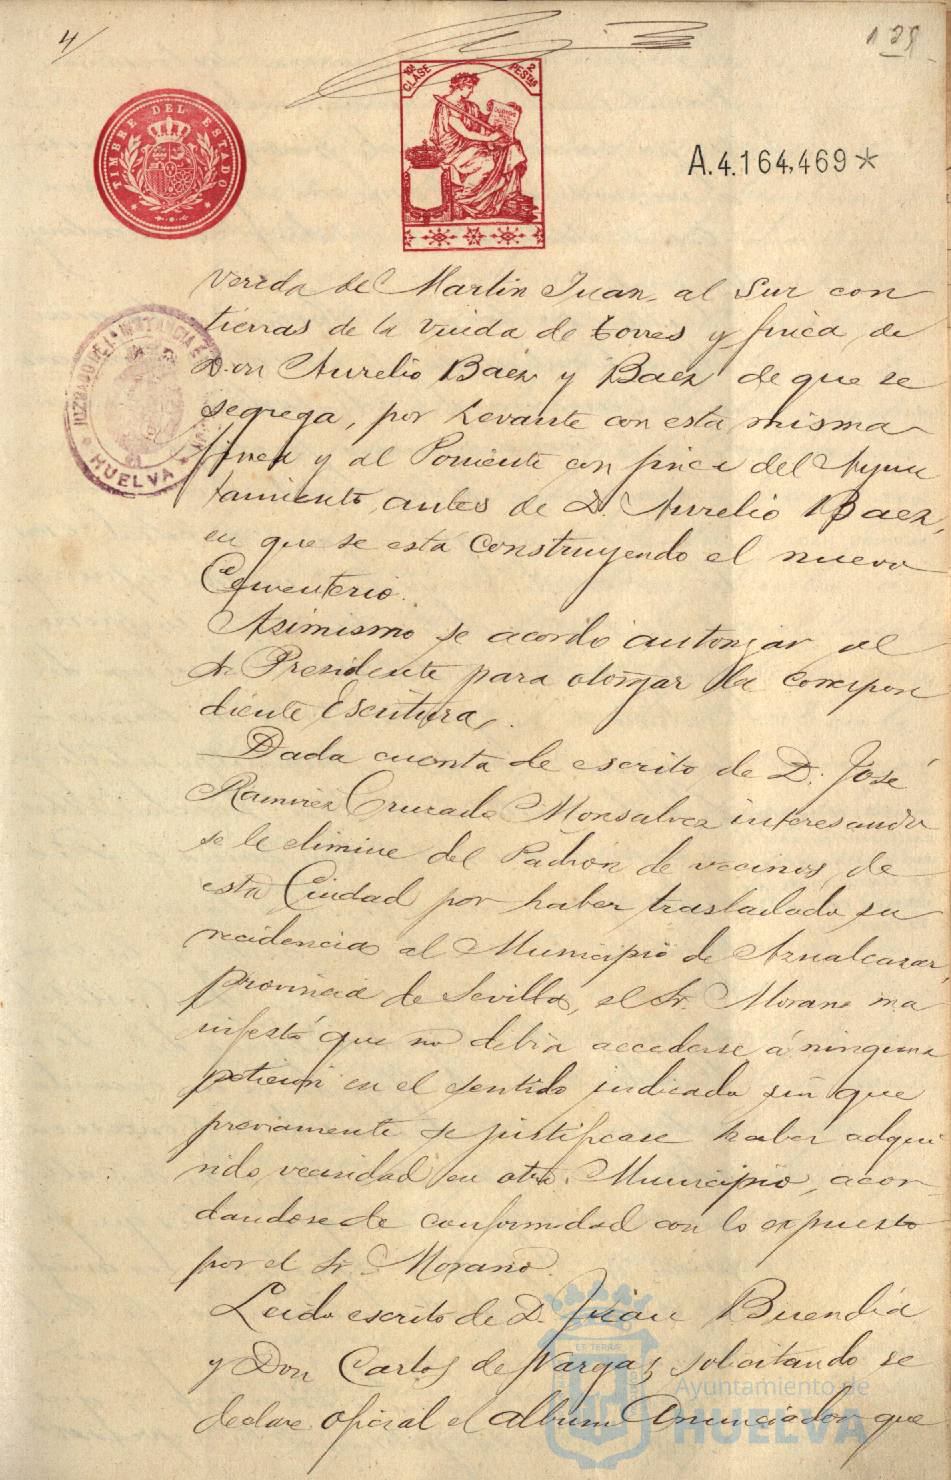 4/
125
TIMBRE DEL ESTADO
10ª CLASE
2 PESETAS
A.4.164,469*
JUZGADO DE 1ª INSTANCIA
HUELVA
Vereda de Martin Juan, al Sur con
tierras de la viuda de torres y finca de
Don Aurelio Baez y Baez de que se
segrega, por Levante con esta misma
finca y al Poniente con finca del Ayun
tamiento, antes de D. Aurelio Baez,
en que se está construyendo el nuevo
Cementerio.
Asimismo se acordó autorizar al
Sr. Presidente para otorgar la correspon
diente Escritura.
Dada cuenta de escrito de D. José
Ramirez Cruzado Monsalvez interesando
se le elimine del Padrón de vecinos de
esta Ciudad por haber trasladado su
recidencia al Municipio de Aznalcazar,
provincia de Sevilla, el Sr. Morano ma
nifestó que no debia accederse á ninguna
peticion en el sentido indicado sin que
previamente se justificase haber adqui
rido vecindad en otro Municipio, acor-
dandose de conformidad con lo expuesto
por el Sr. Morano.
Leido escrito de D. Juan Buendía
y Don Carlos de Vargas solicitando se
declare oficial el album Anunciador que
Ayuntamiento de
HUELVA